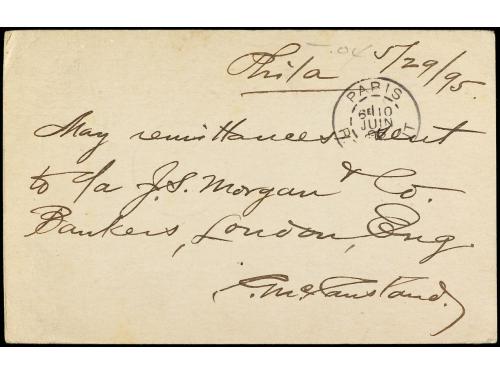 -.04
Phila 5/29/95.
PARIS
6E 10
JUIN
May remittances sent
to c/a J.S. Morgan & Co.
Bankers, London, Eng.